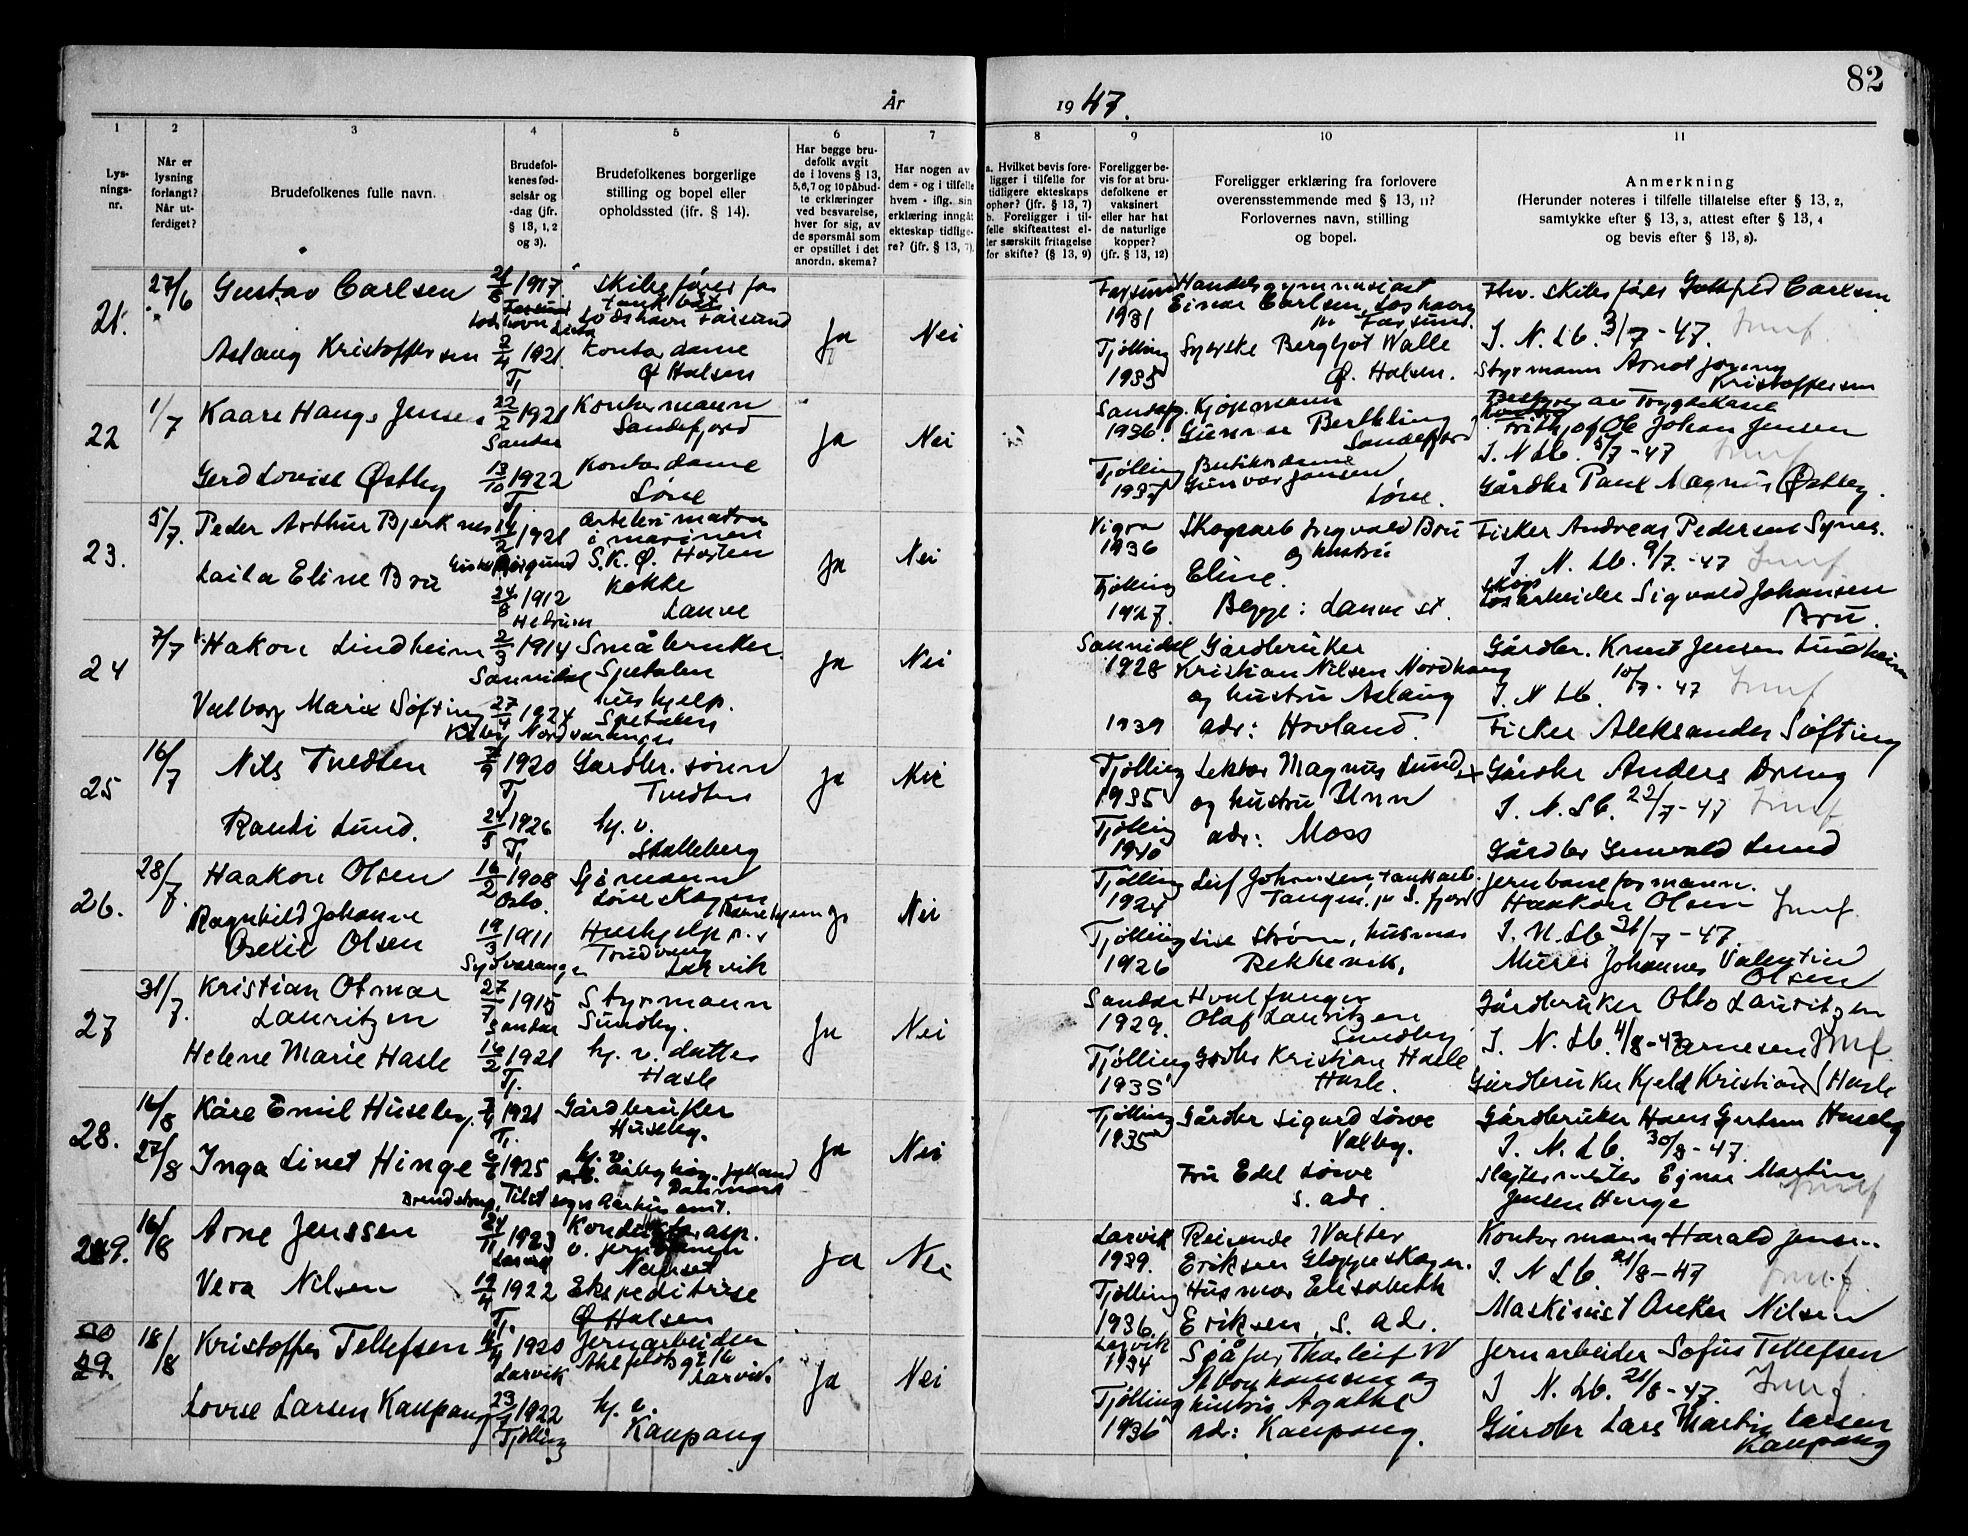 82
År 1947.
1
2
3
4
5
6
7
8
9
10
11
Lys-
nings-
nr.
Når er
lysning
forlangt?
Når ut-
ferdiget?
Brudefolkenes fulle navn.
Brudefol-
kenes fød-
selsår og
-dag (jfr.
§ 13, 1, 2
og 3).
Brudefolkenes borgerlige
stilling og bopel eller
opholdssted (ifr. § 14).
Har begge bru-
defolk avgit
de i lovens § 13,
5,6,7 og 10 påbud-
te erklæringer
ved besvarelse,
hver for sig, av
de spørsmål som
er opstillet i det
anordn. skema?
Har nogen av
dem - og i tilfelle
hvem - iflg. sin
erklæring inngått
ekteskap tidlige-
re? (jfr. § 13, 7).
a. Hvilket bevis fore-
ligger i tilfelle for
tidligere ekteskaps
ophør? (jfr. § 13, 7)
b. Foreligger i til-
felle skifteattest el-
ler særskilt fritagelse
for skifte? (§ 13, 9)
Foreligger be-
vis for at bru-
defolkene er
vaksinert
eller har hat
de naturlige
kopper?
(jfr. § 13, 12)
Foreligger erklæring fra forlovere
overensstemmende med § 13, 11?
Forlovernes navn, stilling
og bopel.
Anmerkning
(Herunder noteres i tilfelle tillatelse efter § 13, 2,
samtykke efter § 13, 3, attest efter § 13, 4
og bevis efter § 13, 8).
21. 27/6 Gustav Carlsen 1917 skibsfører
Lodshavn Farsund
Ja Nei
Farsund 1931 Handelsgymnasiast
Einar Carlsen, Loshavn
pr Farsund.
skibsfører Carlsen
I. N. Lb. 3/7-47.
Aslaug Kristoffersen 2/4 1921 Kontordame
Tj Ø Halsen
Tjølling 1935 Syerske Bergljot Walle
Ø. Halsen.
Styrmann Arnot
Kristoffersen
22 1/7 Kaare Hangs Jensen 22/2 1921 Kontormann
Sandar Sandefjord
Ja Nei
1936. Kjøpmann
Gunnar Berthling
Sandefjord
Bestyrer av Trygdekasse
Frithjof Ole Johan Jensen
I. N Lb. 5/7-47
Gerd Lovise Østby 13/10 1922 Kontordame
Tj. Løve
Tjølling 1937 Butikkdame
Gunvor Jansen
Løve.
Gårdbr Paul Magnus Østby.
23. 5/7. Peder Arthur Bjerknes 1921
i marinen
S.K.Ø. Horten
Ja Nei
Vigra 1936 Skogsarb Sigvald Bru
og hustru
Eline.
Fisker Andreas Pedersen Synes.
I. N. Lb. 9/7.-47
Laila Eline Bru 24/8 1912 Kokke
Hedrum Lauve
Tjølling 1927. Begge: Lauve st.
Skogsarbeider Sigvald Johansen
Bru.
24 7/7 Hakon Lindheim 2/3 1914 Småbruker
Sannidal Spetalen
Ja Nei
Sannidal 1928 Gårdbruker
Kristian Nilsen Nordhaug
og hustru Aslaug
Gårdbr. Knut Jensen Lindheim
I. N Lb. 10/7-47
Valborg Marie Søfting 27/4 1924 hushjelp.
Spetalen
1939 adr: Hovland.
Fisker Aleksander Søfting
25 16/7 Nils Tvedten 1920 Gårdbr. sønn
Tj Tvedten
Ja Nei
Tjølling 1935 Lektor Magnus Lund
og hustru Unn
Gårdbr Anders
I. N. Lb. 22/7-47
Randi Lund. 24/5 1926 hj. v.
Tj Skalleberg
Tjølling 1940 adr: Moss
Gårdbr Gunvald Lund
26. 28/7. Haakon Olsen 16/2 1908 Sjømann
Oslo. Løveskogen
Nei
Tjølling 1924 Leif Johansen, tankarb.
Tangen, pr S. fjord
Jernbaneformann.
Haakon Olsen
I. N. Lb 31/7-47
Ragnhild Johanne
Oselie Olsen 19/3 1911 Hushjelp
Sydvaranger Trudvang
Larvik
Tjølling 1926 Lise Strøm, husmor
Rekkevik.
Murer Johannes Valentin
Olsen
27 31/7. Kristian Otmar
Lauritzen 27/7 1915 Styrmann
Sandar Sundby.
Ja Nei
Sandar 1929. Hvalfanger
Olaf Lauritzen
Sundby
Gårdbruker Otto Lauritzen
I. N. Lb. 4/8-47
Helene Marie Hasle 16/2 1921 hj. v. datter
Tj. Hasle
Tjølling 1935 Gårdbr Kristian Hasle
Hasle.
Gårdbruker Kjeld Kristian Arnesen Hasle
28. 16/8 Kåre Emil Huseby. 1921 Gårdbruker
Tj. Huseby.
Ja Nei
Tjølling 1935 Gårdbr Sigurd Løwe
Valby.
Gårdbruker Hans Huseby
I. N. Lb. 30/8-47.
27/8 Inga Linet Hinge 1925 hj. v.
Danmark
Tilst sogn Aarhus amt.
Fru Edel Løwe
S. adr.
Slagtermester Ejnar Martin
Jensen Hinge
29. 16/8 Arne Jenssen 24/11 1923 Konduktørasp.
Larvik v. jernbanen
Nanset
Ja Nei
Larvik 1939. Reisende Walter
Eriksen Gloppeskogen.
Kontormann Harald Jensen
I. N Lb. 21/8-47
Vera Nilsen 19/4 1922 Ekspeditrise
Tj. Ø Halsen
Tjølling 1936. Husmor Elisabeth
Eriksen, S. adr.
Maskinist Nilsen
29. 18/8 Kristoffer Tellefsen 1920 Jernarbeider
Larvik Ahlfeldts gt 16
Larvik
Ja Nei
Larvik 1934 Sjåfør Thorleif W
og
Jernarbeider Sofus Tellefsen
I N. Lb. 21/8-47.
Lovise Larsen Kaupang 23/ 1922 hj. v.
Tjølling Kaupang
Tjølling 1936 hustru Agathe
adr: Kaupang.
Gårdbr Lars Martin Larsen
Kaupang